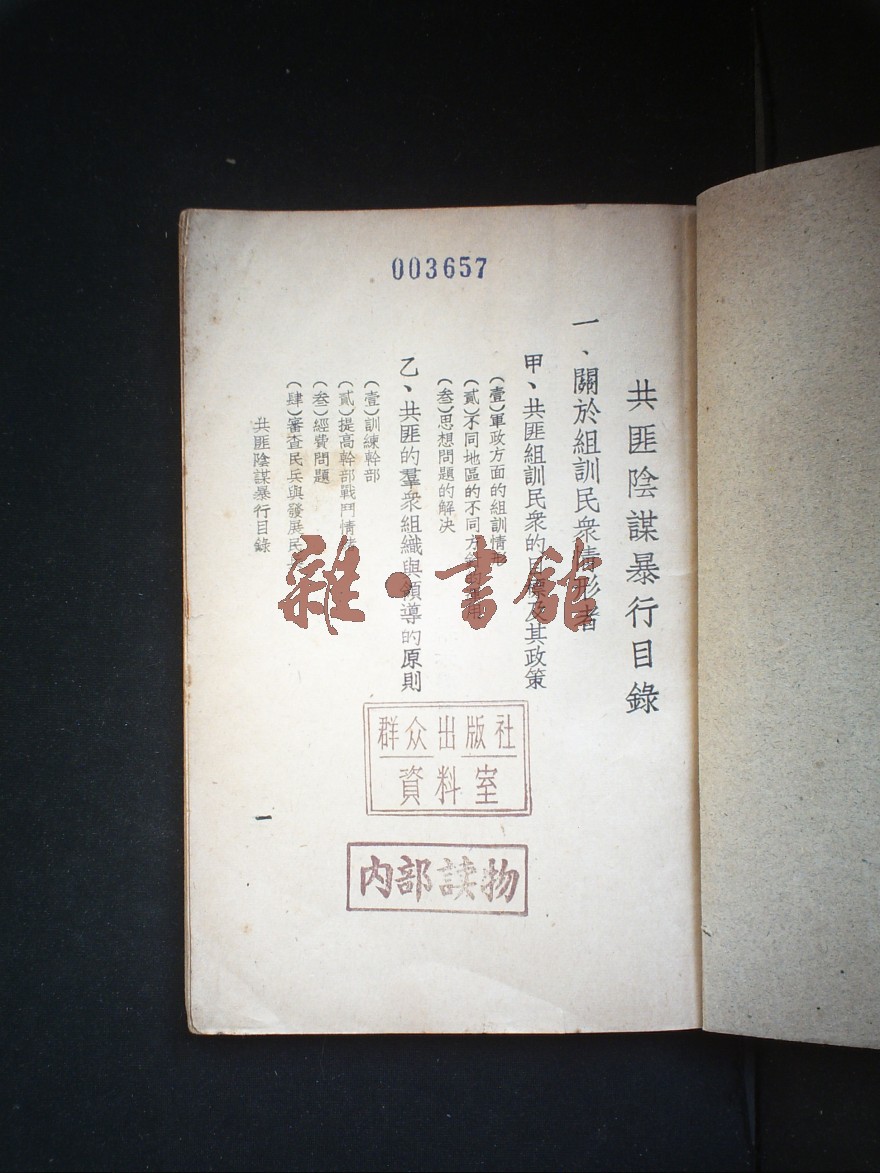 003657
共匪陰謀暴行目錄
一、關於組訓民衆情形者
甲、共匪組訓民衆的目標及其政策
(壹)軍政方面的組訓情形
(貳)不同地區的不同方
(叁)思想問題的解决
乙、共匪的羣衆組織與領導的原則
(壹)訓練幹部
(貳)提高幹部戰鬥情
(叁)經費問題
(肆)審查民兵與發展民
共匪陰謀暴行目錄
一
雜·書館
群众出版社
資料室
内部読物